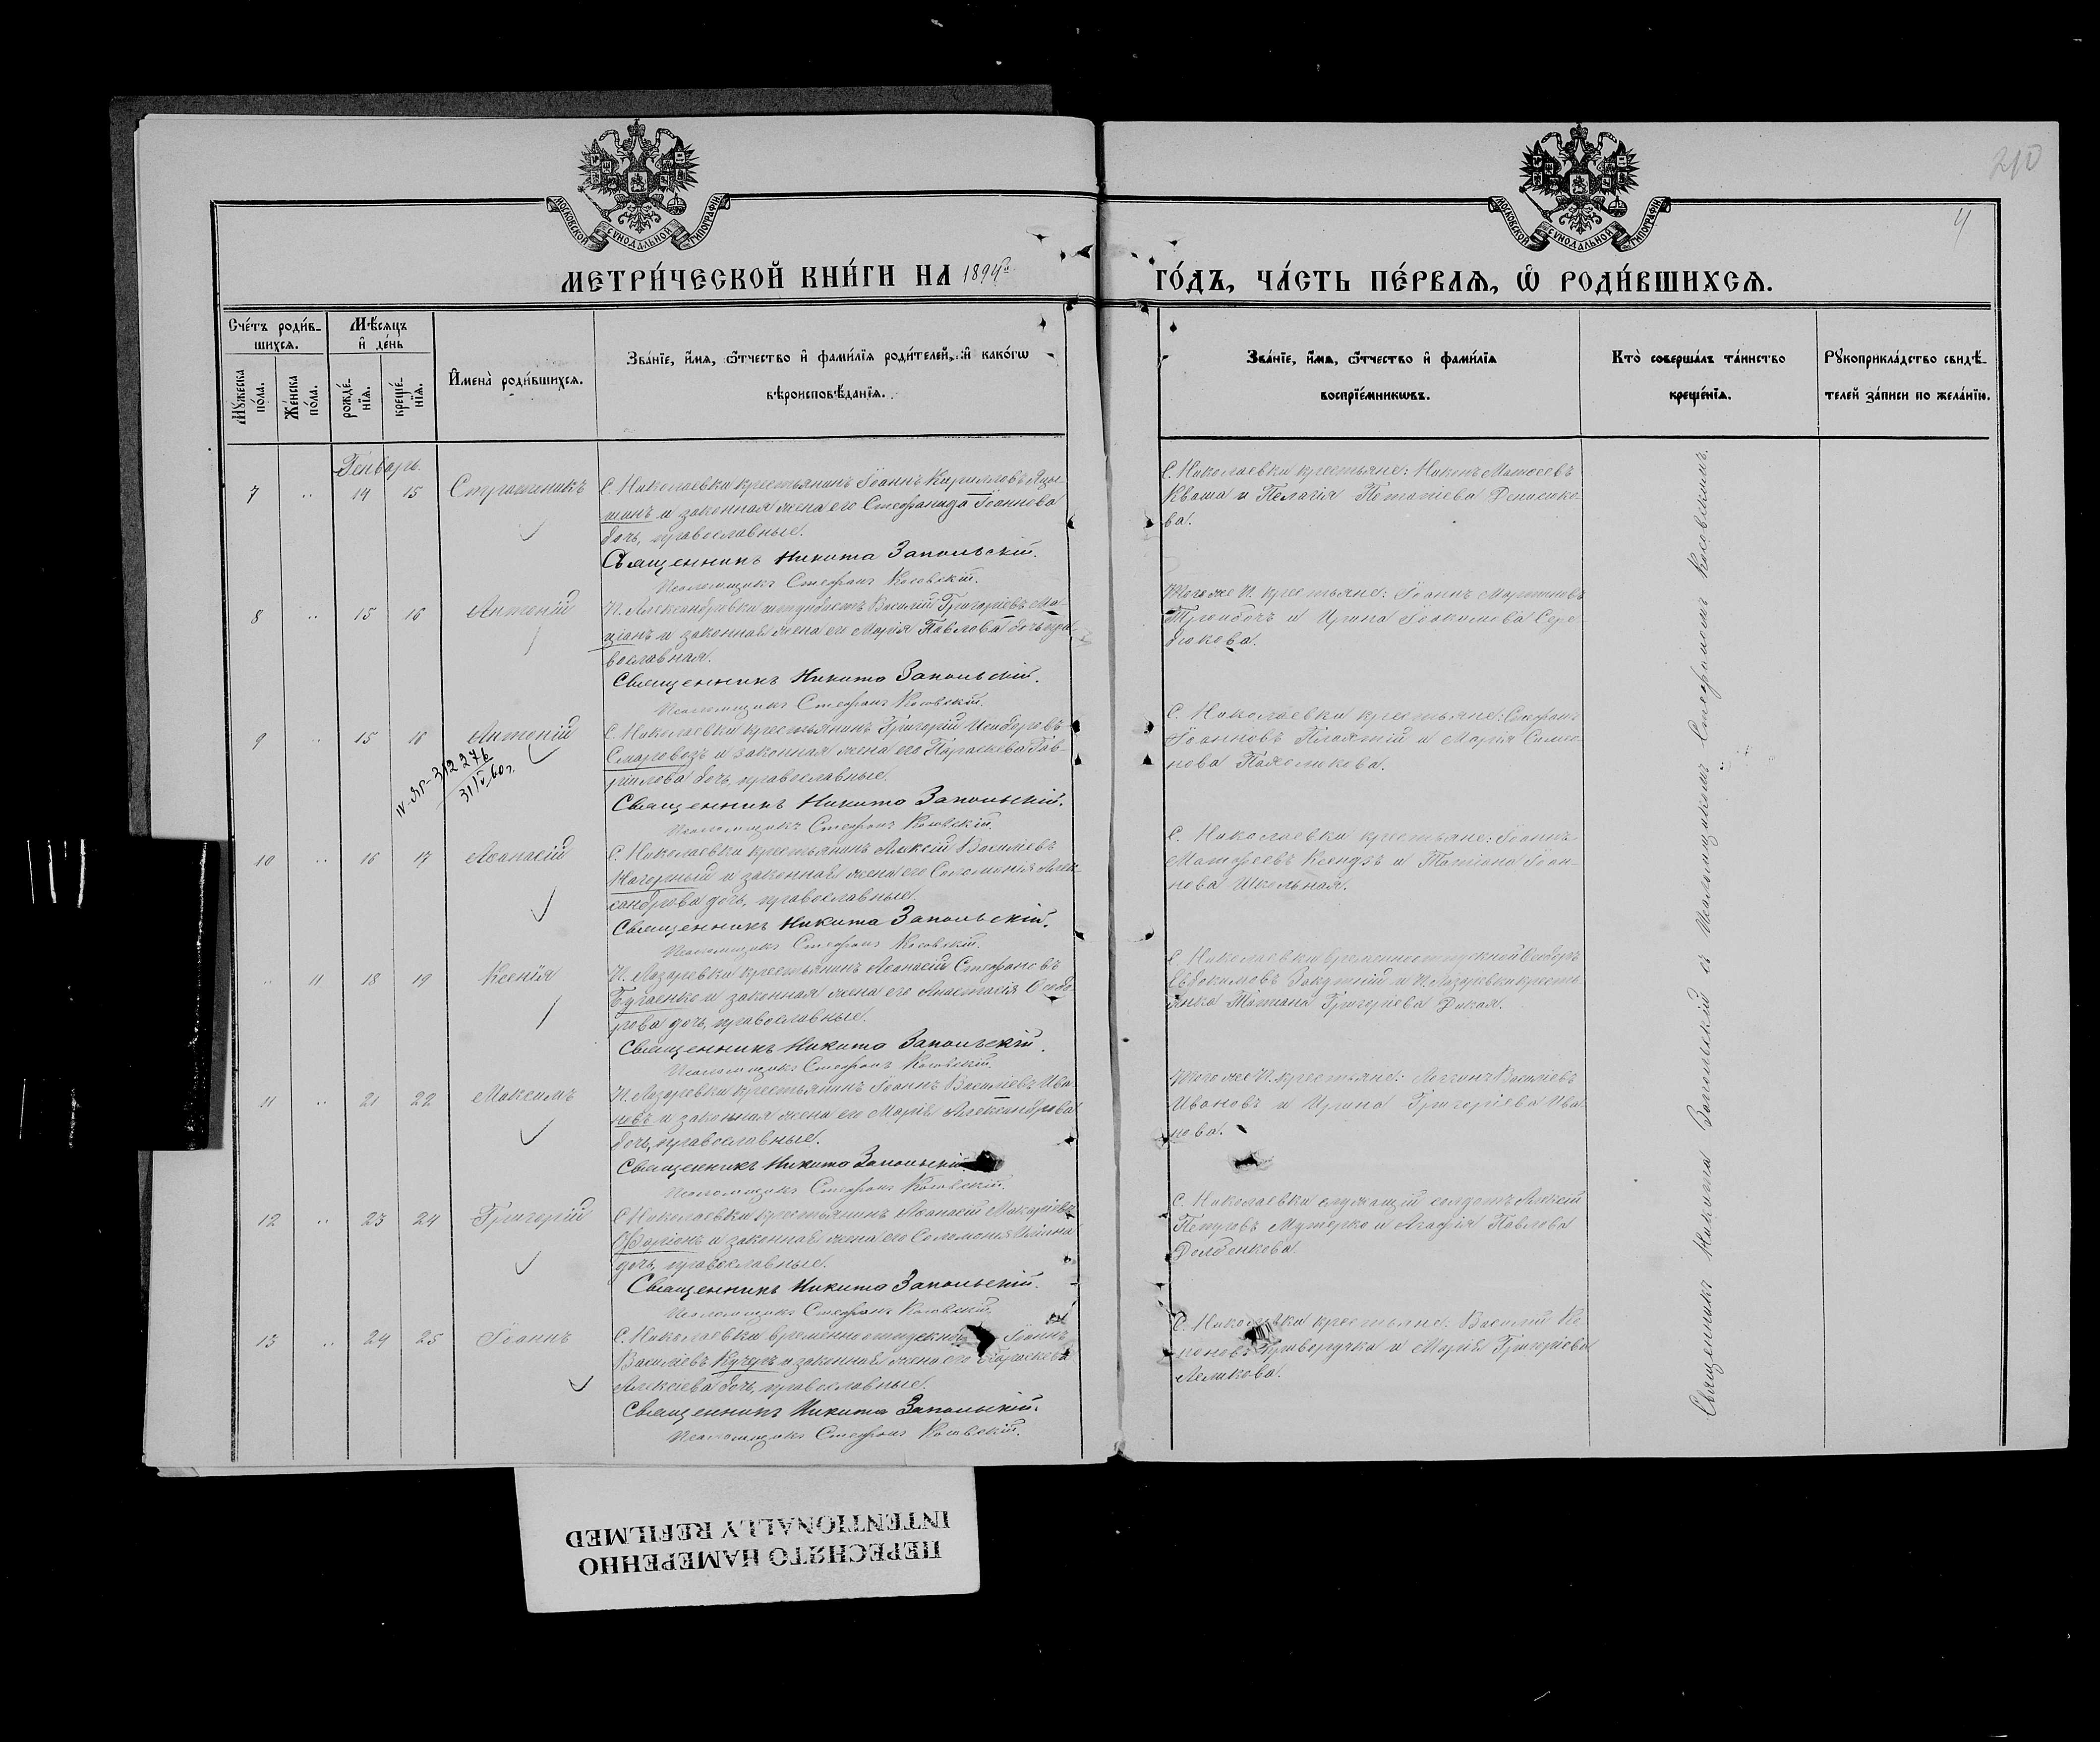 210
4
МОСКОВСКОЙ СѴНОДАЛЬНОЙ ТИПОГРАФІИ.
МОСКОВСКОЙ СѴНОДАЛЬНОЙ ТИПОГРАФІИ.
МЕТРИ́ЧЕСКОЙ КНИ́ГИ НА 1894й ГО́ДЪ, ЧА́СТЬ ПЕ́РВАЯ, Ѡ҆ РОДИ́ВШИХСЯ.
Сче́тъ роди́в-
шихся.
Му́жеска
по́ла.
Же́нска
по́ла.
Мѣ́сяцъ
и҆ де́нь
рожде́-
нїя.
креще́-
нїя.
И҆мена̀ роди́вшихся.
Зва́нїе, и҆́мя, ѻ҆́тчество и҆ фами́лїя роди́телей, и҆ како́гѡ
вѣроисповѣ́данїя.
Зва́нїе, и҆́мя, ѻ҆́тчество и҆ фами́лїя
воспрїе́мникѡвъ.
Кто̀ соверша́лъ та́инство
креще́нїя.
Рꙋкоприкла́дство свидѣ́-
телей за́писи по жела́нїю.
Генварь.
7 .. 14 15
С. Николаевки крестьянинъ Іоаннъ Кирилловъ
и законная жена его Стефанида Іоаннова
дочь, православные.
Священникъ Никита Запольскій.
Псаломщикъ Стефанъ Косовскій.
С. Николаевки крестьяне:
Кваша и Пелагія
ва.
8 .. 15 16 Антоній
П. Александровки Василій Григоріевъ
и законная жена его Марія Павлова дочь пра-
вославная.
Священникъ Никита Запольскій.
Псаломщикъ Стефанъ Косовскій.
Того же П. крестьяне: Іоаннъ Мартиновъ
и Ирина Іоакимова Сере-
дюкова.
9 .. 15 16 Антоній
312276
31/V 60 г.
С. Николаевки крестьянинъ Григорій Исидоровъ
и законная жена его Параскева Гав-
рилова дочь, православные.
Священникъ Никита Запольскій.
Псаломщикъ Стефанъ Косовскій.
С. Николаевки крестьяне: Стефанъ
Іоанновъ и Марія Симео-
нова
10 .. 16 17 Аѳанасій
С. Николаевки крестьянинъ Алексій Василіевъ
Нагорный и законная жена его Соломонія Алек-
сандрова дочь, православные.
Священникъ Никита Запольскій.
Псаломщикъ Стефанъ Косовскій.
С. Николаевки крестьяне: Іоаннъ
Матфеевъ Ксендзъ и Татіана Іоан-
нова Школьная.
.. 11 18 19 Ксенія
П. Лазаревки крестьянинъ Аѳанасій Стефановъ
Бугаенко и законная жена его Анастасія Ѳеодо-
рова дочь, православные.
Священникъ Никита Запольскій.
Псаломщикъ Стефанъ Косовскій.
С. Николаевки временноотпускной Ѳеодоръ
Евдокимовъ и П. Лазаревки кресть-
янка Татіана Григоріева Дикая.
11 .. 21 22 Максимъ
П. Лазаревки крестьянинъ Іоаннъ Василіевъ Ива-
новъ и законная жена его Марія Александрова
дочь, православные.
Священникъ Никита Запольскій.
Псаломщикъ Стефанъ Косовскій.
Того же П. крестьяне: Логгинъ Василіевъ
Ивановъ и Ирина Григоріева Ива-
нова.
12 .. 23 24 Григорій
С. Николаевки крестьянинъ Аѳанасій Макаріевъ
и законная жена его Соломонія
дочь, православные.
Священникъ Никита Запольскій.
Псаломщикъ Стефанъ Косовскій.
С. Николаевки служащій солдатъ Алексій
Петровъ и Агафія Павлова
13 .. 24 25 Іоаннъ
С. Николаевки временноотпускной Іоаннъ
Василіевъ Кучеръ и законная жена его Параскева
Алексіева дочь, православные.
Священникъ Никита Запольскій.
Псаломщикъ Стефанъ Косовскій.
С. Николаевки крестьяне: Василій
Криворучка и Марія Григоріева
Священникъ Никита Запольскій съ Псаломщикомъ Стефаномъ Косовскимъ.
ПЕРЕСНЯТО НАМЕРЕННО
INTENTIONALLY REFILMED